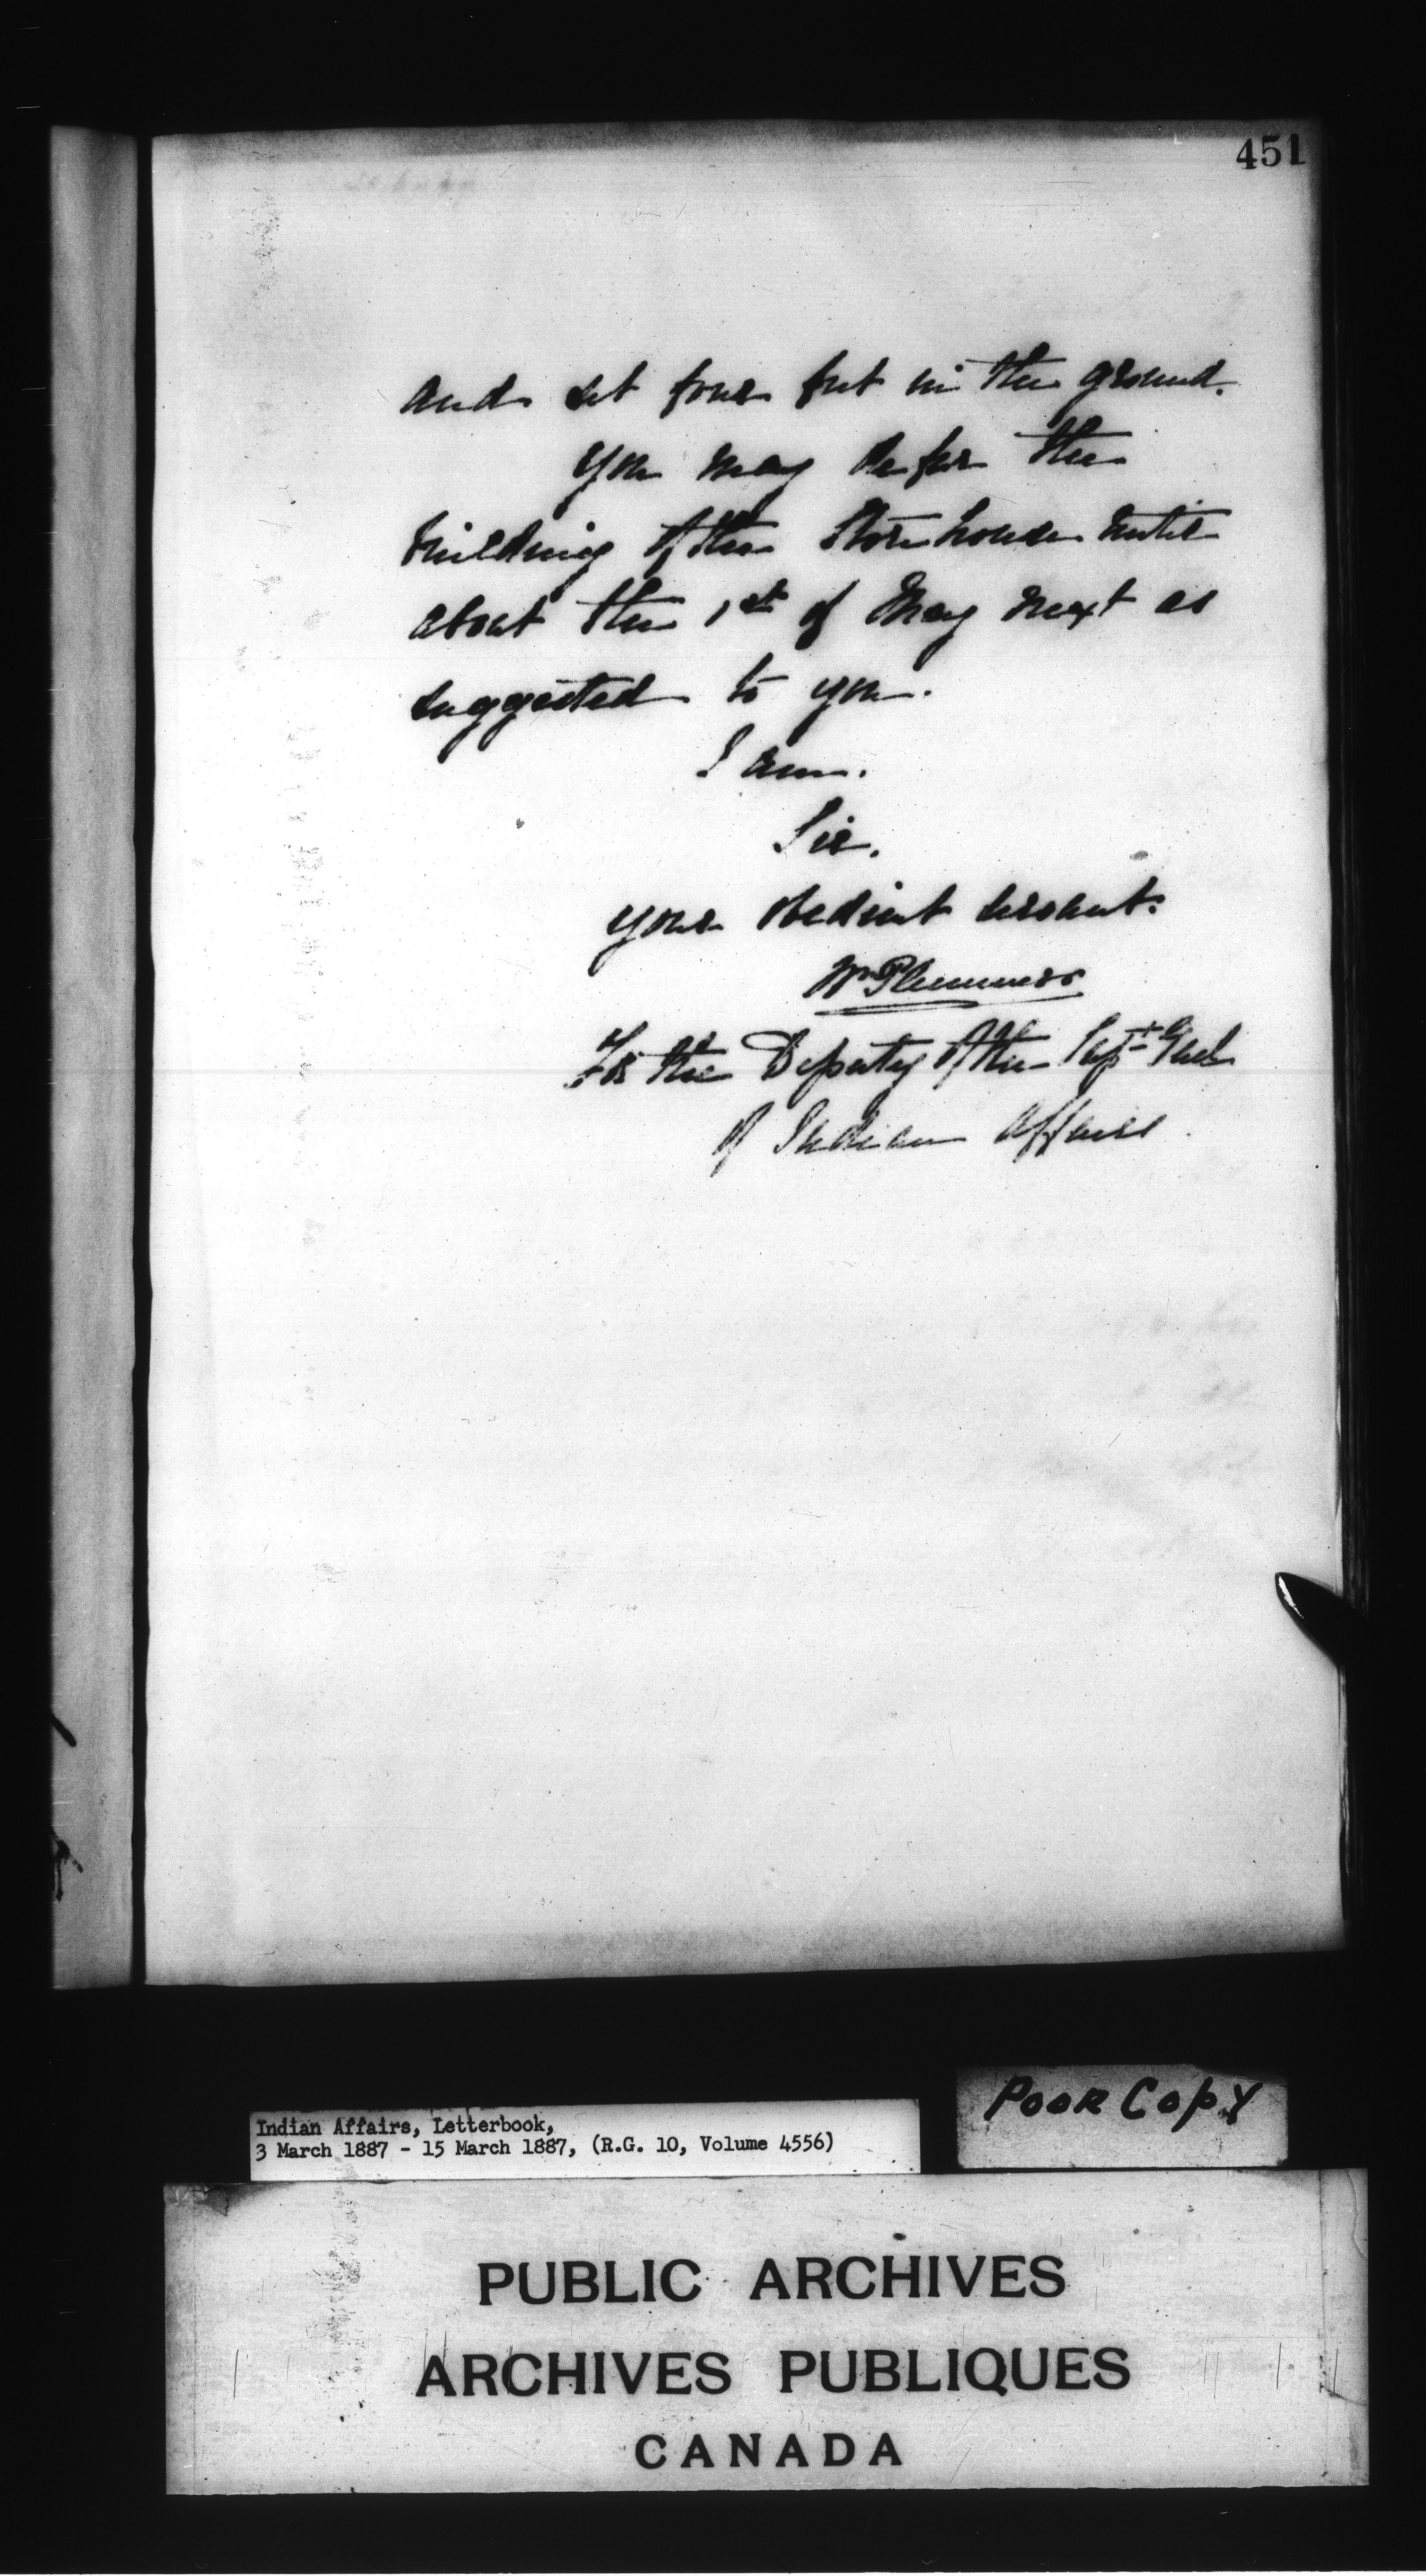 451
and set four feet in the ground.
You may defer the
building of the Storehouse until
about the 1st of May next as
suggested to you.
I am.
Sir.
your obedient servant.
Wm Plummer
For the Deputy of the Supt Genl
of Indian Affairs.
POOR COPY
Indian Affairs, Letterbook,
3 March 1887 - 15 March 1887, (R.G. 10, Volume 4556)
PUBLIC ARCHIVES
ARCHIVES PUBLIQUES
CANADA